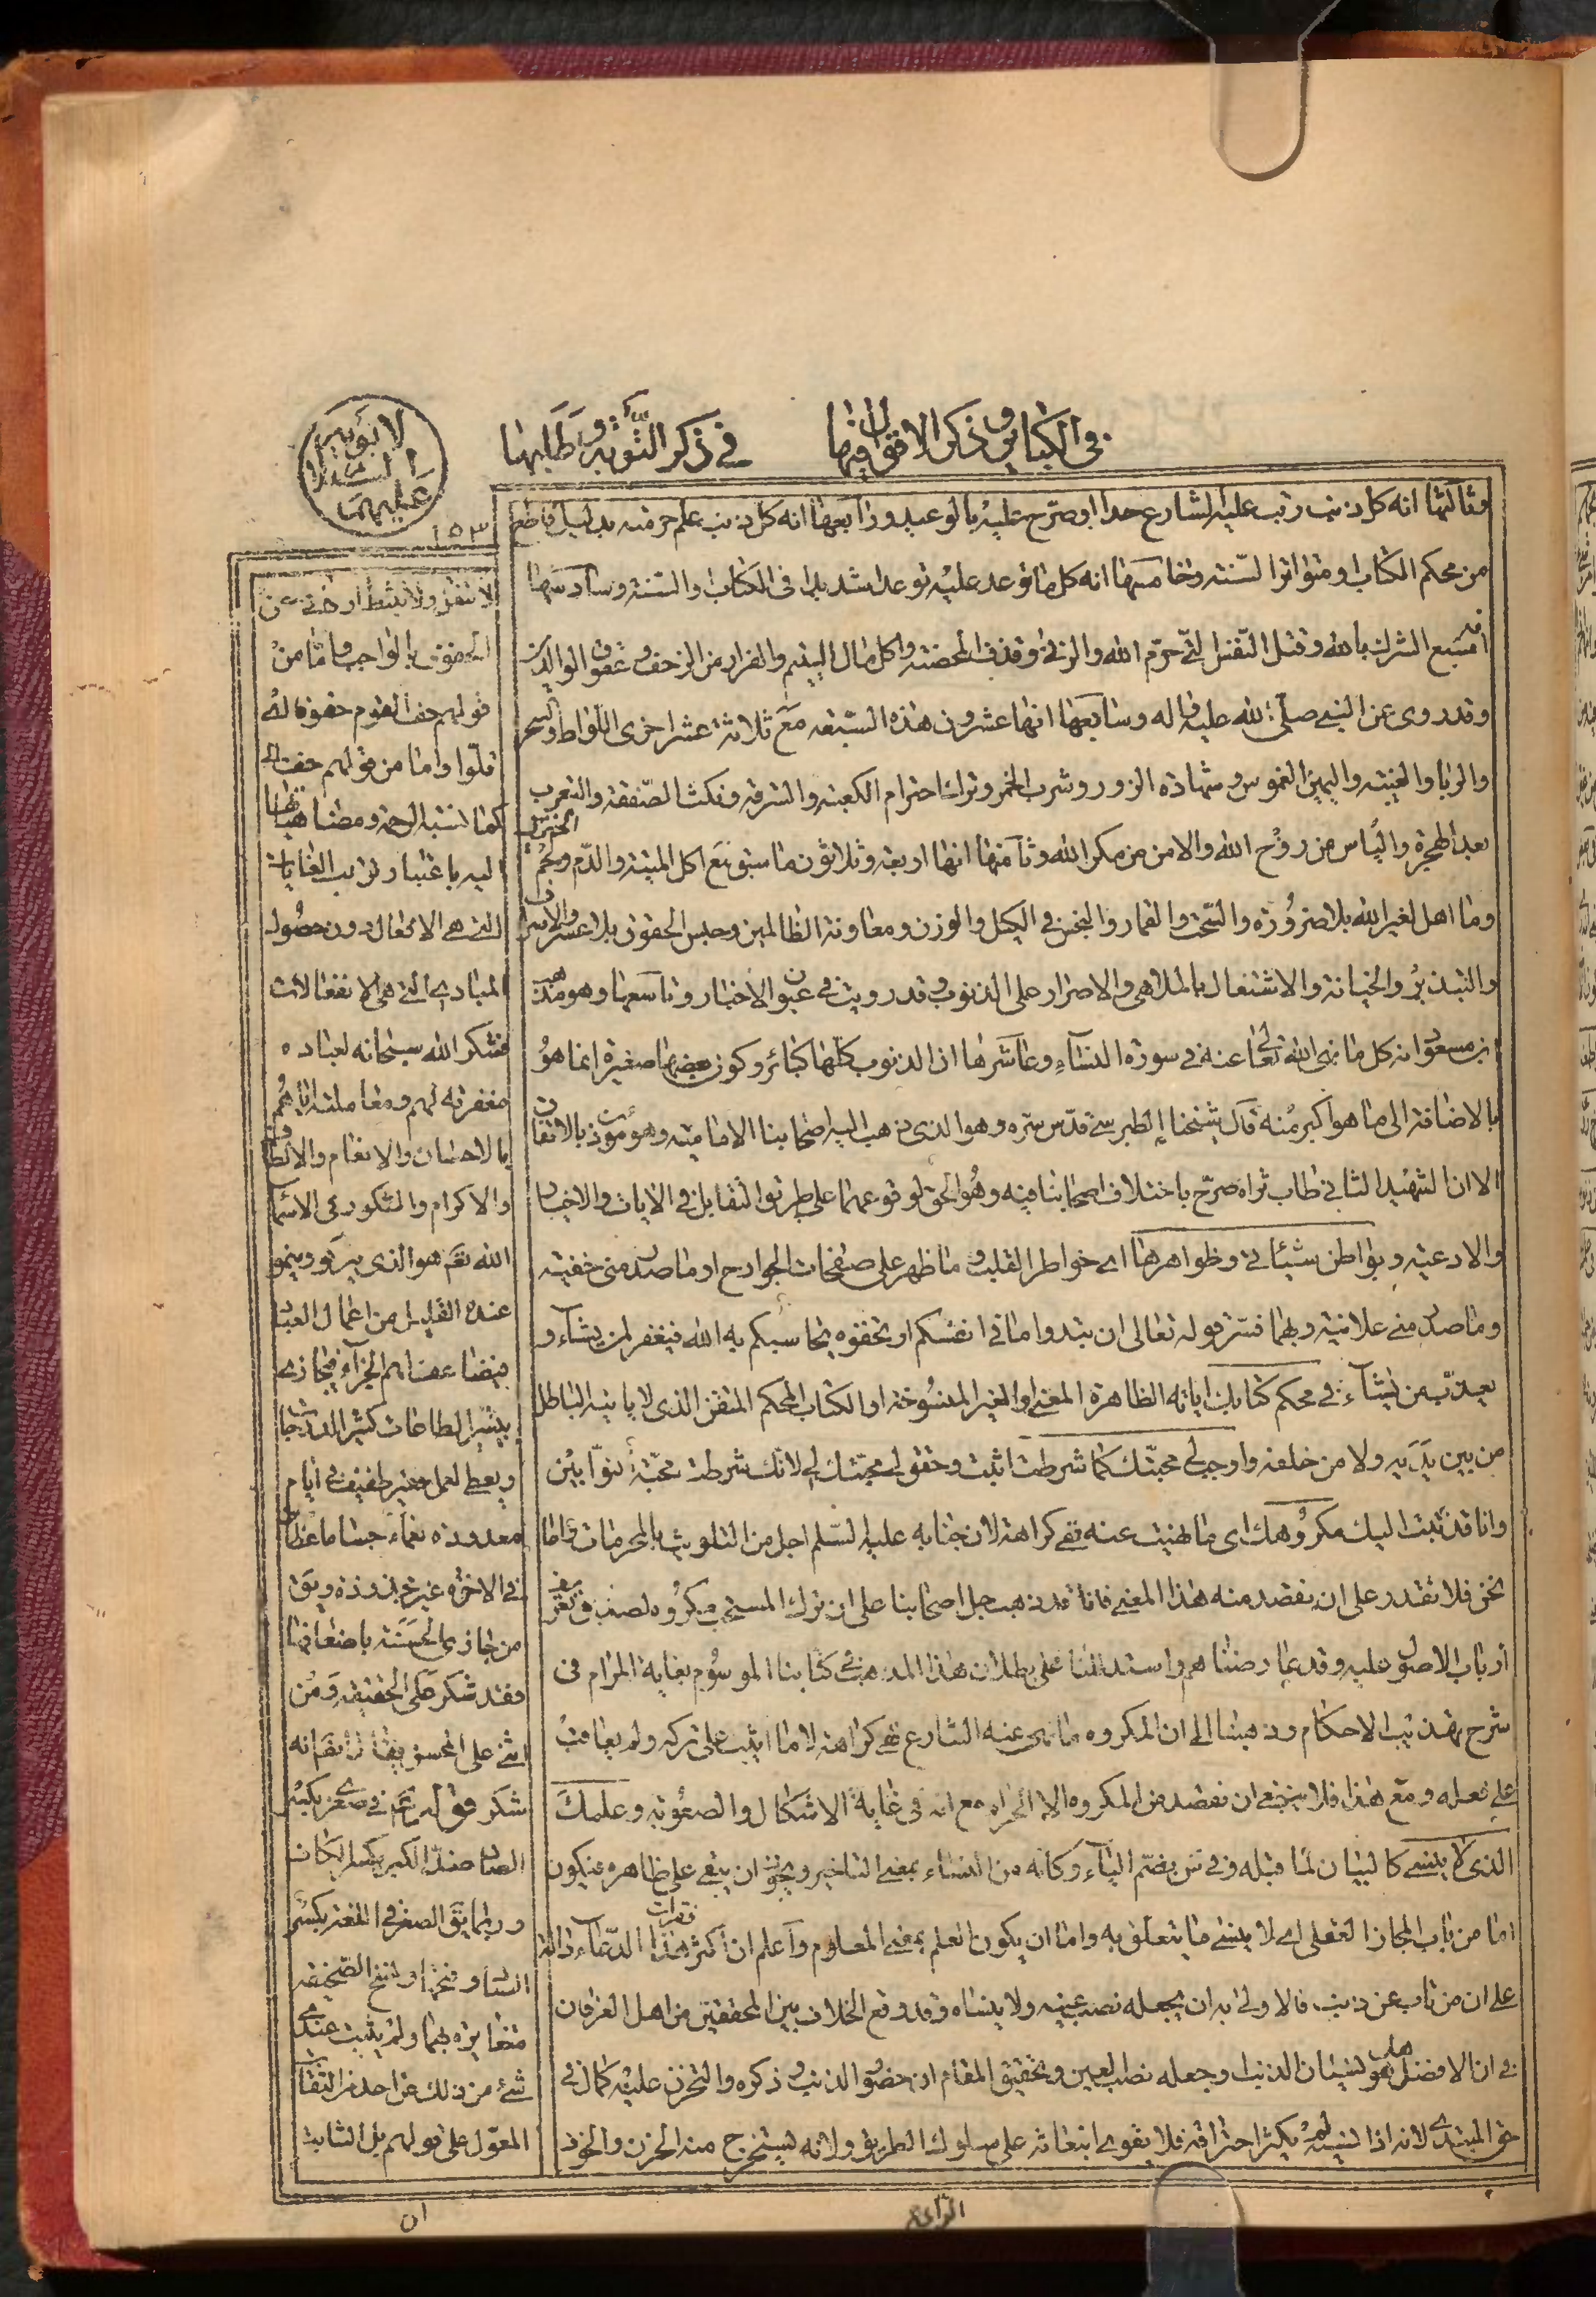 في الكبائر وذكر الاقوال فيها
في ذكر التوبة وطلبها
لابويه عليهما السلام
١٥٣
وثالثها انه كل ذنب رتب عليه الشارع حدا او صرح عليه بالوعيد ورابعها انه كل ذنب علم حرمته بدليل قاطع
من محكم الكتاب او متواتر السنة وخامسها انه كل ما توعد عليه توعدا شديدا في الكتاب والسنة وسادسها
انه سبع الشرك بالله وقتل النفس التي حرم الله والزنى وقذف المحصنة واكل مال اليتيم والفرار من الزحف وعقوق الوالدين
وقد روى عن النبي صلى الله عليه واله وسابعها انها عشرون هذه السبعة مع ثلاثة عشر اخرى اللواط والسحر
والربا والغيبة واليمين الغموس وشهادة الزور وشرب الخمر وترك احترام الكعبة والسرقة ونكث الصفقة والتعرب
بعد الهجرة والياس من روح الله والامن من مكر الله وثامنها انها اربعة وثلاثون ما سبق مع اكل الميتة والدم ولحم الخنزير
وما اهل لغير الله بلا ضرورة والسحت والقمار والبخس في الكيل والوزن ومعاونة الظالمين وحبس الحقوق بلا عسر والاسراف
والتبذير والخيانة والاشتغال بالملاهي والاصرار على الذنوب وقد رويت في عيون الاخبار وتاسعها وهو مذهب
ابن مسعود انه كل ما نهى الله تعالى عنه في سورة النساء وعاشرها ان الذنوب كلها كبائر وكون بعضها صغيرة انما هو
بالاضافة الى ما هو اكبر منه قال شيخنا الطبرسي قدس سره وهو الذي ذهب اليه اصحابنا الامامية وهو مؤذن بالاتفاق
الا ان الشهيد الثاني طاب ثراه صرح باختلاف اصحابنا فيه وهو الحق لوقوعهما على طريق التقابل في الايات والاخبار
والادعية وبواطن سيئاتي وظواهرها اي خواطر القلب وما ظهر على صفحات الجوارح او ما صدر مني خفية
وما صدر مني علانية وبهما فسر قوله تعالى ان تبدوا ما في انفسكم او تخفوه يحاسبكم به الله فيغفر لمن يشاء و
يعذب من يشاء في محكم كتابك اياته الظاهرة المعنى او الغير المنسوخة او الكتاب المحكم المتقن الذي لا ياتيه الباطل
من بين يديه ولا من خلفه واوجب لي محبتك كما شرطت اثبت وحقق لي محبتك لي لانك شرطت محبة التوابين
وانا قد تبت اليك مكروهك اي ما نهيت عنه نهي كراهة لان جنابه عليه السلم اجل من التلويث بالمحرمات واما
نحن فلا نقدر على ان نقصد منه هذا المعنى فانا قد ذهب جل اصحابنا على ان ترك المستحب مكروه لصدق تعريف
ارباب الاصول عليه وقد عارضناهم واستدللنا على بطلان هذا المذهب في كتابنا الموسوم بغاية المرام في
شرح تهذيب الاحكام وذهبنا الى ان المكروه ما نهى عنه الشارع نهي كراهة لا ما اثيب على تركه ولم يعاقب
على فعله ومع هذا فلا ينبغي ان نقصد من المكروه الا الحرام مع انه في غاية الاشكال والصعوبة وعلمك
الذي لا ينسى كالبيان لما قبله وفي س بضم الياء وكانه من النساء بمعنى التاخير ويجوز ان يبقى على ظاهره فيكون
اما من باب المجاز العقلي اي لا ينسى ما يتعلق به واما ان يكون العلم بمعنى المعلوم واعلم ان اكثر فقرات هذا الدعاء دالة
على ان من تاب عن ذنب فالاولى به ان يجعله نصب عينيه ولا ينساه وقد وقع الخلاف بين المحققين من اهل العرفان
في ان الافضل هل هو نسيان الذنب او جعله نصب العين وتحقيق المقام ان حضور الذنب وذكره والتحزن عليه كمال في
حق المبتدي لانه اذا نسيه لم يكثر احتراقه فلا يقوى انبعاثه على سلوك الطريق ولانه يستخرج منه الحزن والخوف
لا تنفر ولا تثبط ارضني عن
الحقوق بالواجب واما من
قولهم حف القوم حفوفا اي
قلوا واما من قولهم حفت
كما نسبة الرحمة ومضاهيها
اليه باعتبار ترتيب الغايات
التي هي الافعال دون حصول
المبادي التي هي الانفعالات
فشكر الله سبحانه لعباده
مغفرته لهم ومعاملته اياهم
بالاحسان والانعام والالطاف
والاكرام والشكور في الاسماء
الله تعم هو الذي يربو وينمو
عنده القليل من اعمال العباد
فيضاعف لهم الجزاء فيجازي
بيسير الطاعات كثير الدرجات
ويعطي لعمل حقير طفيف في ايام
معدودة نعماء جساما عظاما
في الاخرة غير مجذوذة ويق
من جازى الحسنة باضعافها
فقد شكر على الحقيقة ومن
اثنى على المحسن يقال ايضا انه
شكر قوله تعم في صغر بكسر
الصاد ضد الكبر بكسر الكاف
وربما يق الصغر في اللغة بكسر
الصاد وفتحها ونسخ الصحيفة
متغايرة بهما ولم يثبت عندي
شئ من ذلك عن احد من الثقات
المعول على قولهم بل الثابت
الرابع
ان